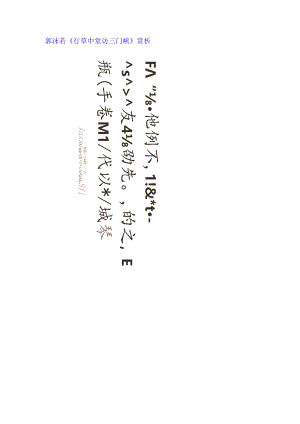 郭沫若《行草中堂访三门峡》赏析
FΛ “⅛•他例不, 1!&*t•-
^s^>^友4⅛劭先。, 的之, E
瓶(手卷M1/代以*/城琴